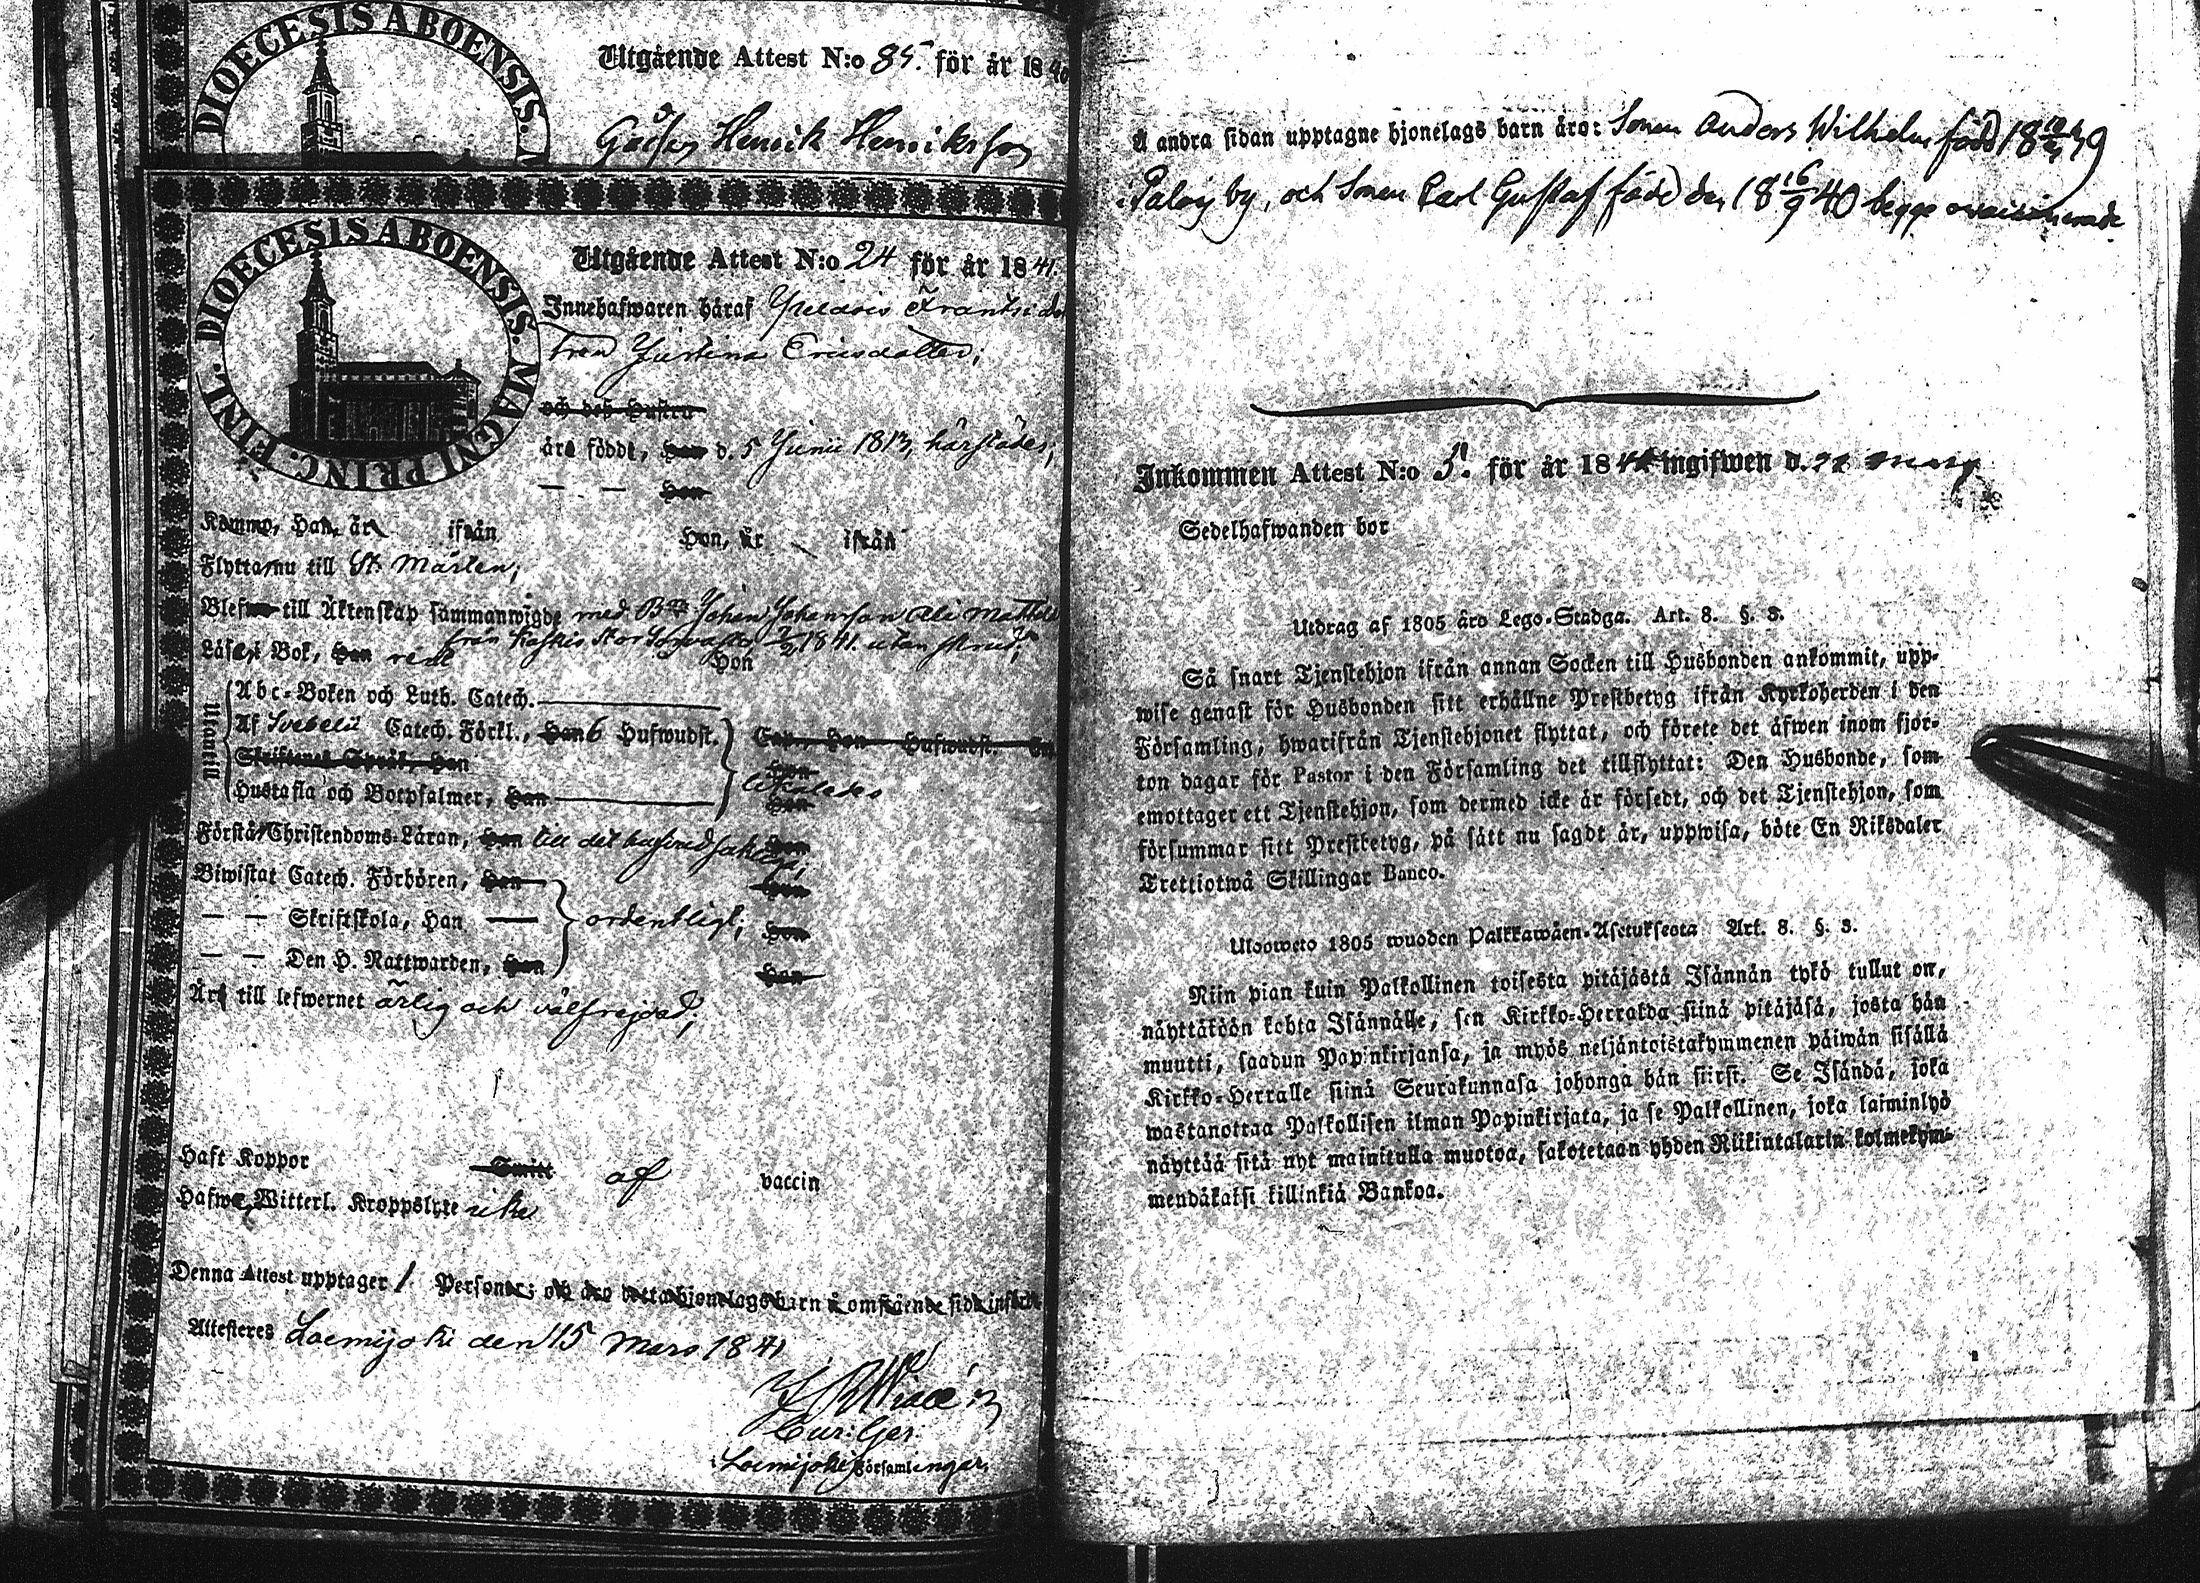 DIOECESIS ABOENSIS. M
Utgående Attest N:o 85. för år 1840
Henrik Henriksson
DIOECESIS ABOENSIS. MAGNI PRINC. FINL.
Utgående Attest N:o 24 för år 1841.
Innehafwaren häraf
Justina Ericsdotter;
och deß Hustru
äro födde, Han d. 5 Junii 1813, härstädes;
— — Hon
Kommo, Han, år ifrån Hon, år ifrån
Flyttar nu till St. Mårten;
Blefwo till Äktenskap sammanwigde med Johan Johansson
från 1841. utan
Läser i Bok, Han rent Hon
Utantill
Abc-Boken och Luth. Catech.
Af Svebelii Catech. Förkl., Han 6 Hufwudst. Cap., Hon Hufwudst.
Skriftenes Språk, Han Hon
likaledes
Hustafla och Botpsalmer, Han Hon
Förstå Christendoms-Läran, Han till det hufvudsakliga; Hon
Biwistat Catech. Förhören, Han Hon
— — Skriftskola, Han ordentligt; Hon
— — Den H. Nattwarden, Han Hon
Äro till lefwernet ärlig och välfrejdad;
Haft Koppor Smitt af vaccin
Hafwa Witterl. Kroppslyte icke
Denna Attest upptager 1 Personer; och äro detta hjonelags barn å omstående sida införde
Attesteres Loemijoki den 15 Mars 1841
Cur. Ger.
i Loemijoki Församlingar.
Å andra sidan upptagne hjonelags barn äro: Sonen Anders Wilhelm född
by, och Sonen Carl Gustaf född den 18 16/9 40 begge
Inkommen Attest N:o 5. för år 1841 ingifwen d. Mars
Sedelhafwanden bor
Utdrag af 1805 års Lego-Stadga. Art. 8. §. 3.
Så snart Tjenstehjon ifrån annan Socken till Husbonden ankommit, upp-
wise genast för Husbonden sitt erhållne Prestbetyg ifrån Kyrkoherden i den
Församling, hwarifrån Tjenstehjonet flyttat, och förete det äfwen inom fjor-
ton dagar för Pastor i den Församling det tillflyttat: Den Husbonde, som
emottager ett Tjenstehjon, som dermed icke är försedt, och det Tjenstehjon, som
försummar sitt Prestbetyg, på sätt nu sagdt är, uppwisa, böte En Riksdaler
Trettiotwå Skillingar Banco.
Ulosweto 1805 wuoden Palkkawäen-Asetuksesta Art. 8. §. 3.
Niin pian kuin Palkollinen toisesta pitäjästä Isännän tykö tullut on,
näyttäköön kohta Isännälle, sen Kirkko-Herralda siinä pitäjäsä, josta hän
muutti, saadun Papinkirjansa, ja myös neljäntoistakymmenen päiwän sisällä
Kirkko-Herralle siinä Seurakunnasa johonga hän siirst. Se Isändä, joka
wastanottaa Palkollisen ilman Papinkirjata, ja se Palkollinen, joka laiminlyö
näyttää sitä nyt mainitulla muotoa, sakotetaan yhden Riikintalarin kolmekym-
mendäkaksi killinkiä Bankoa.